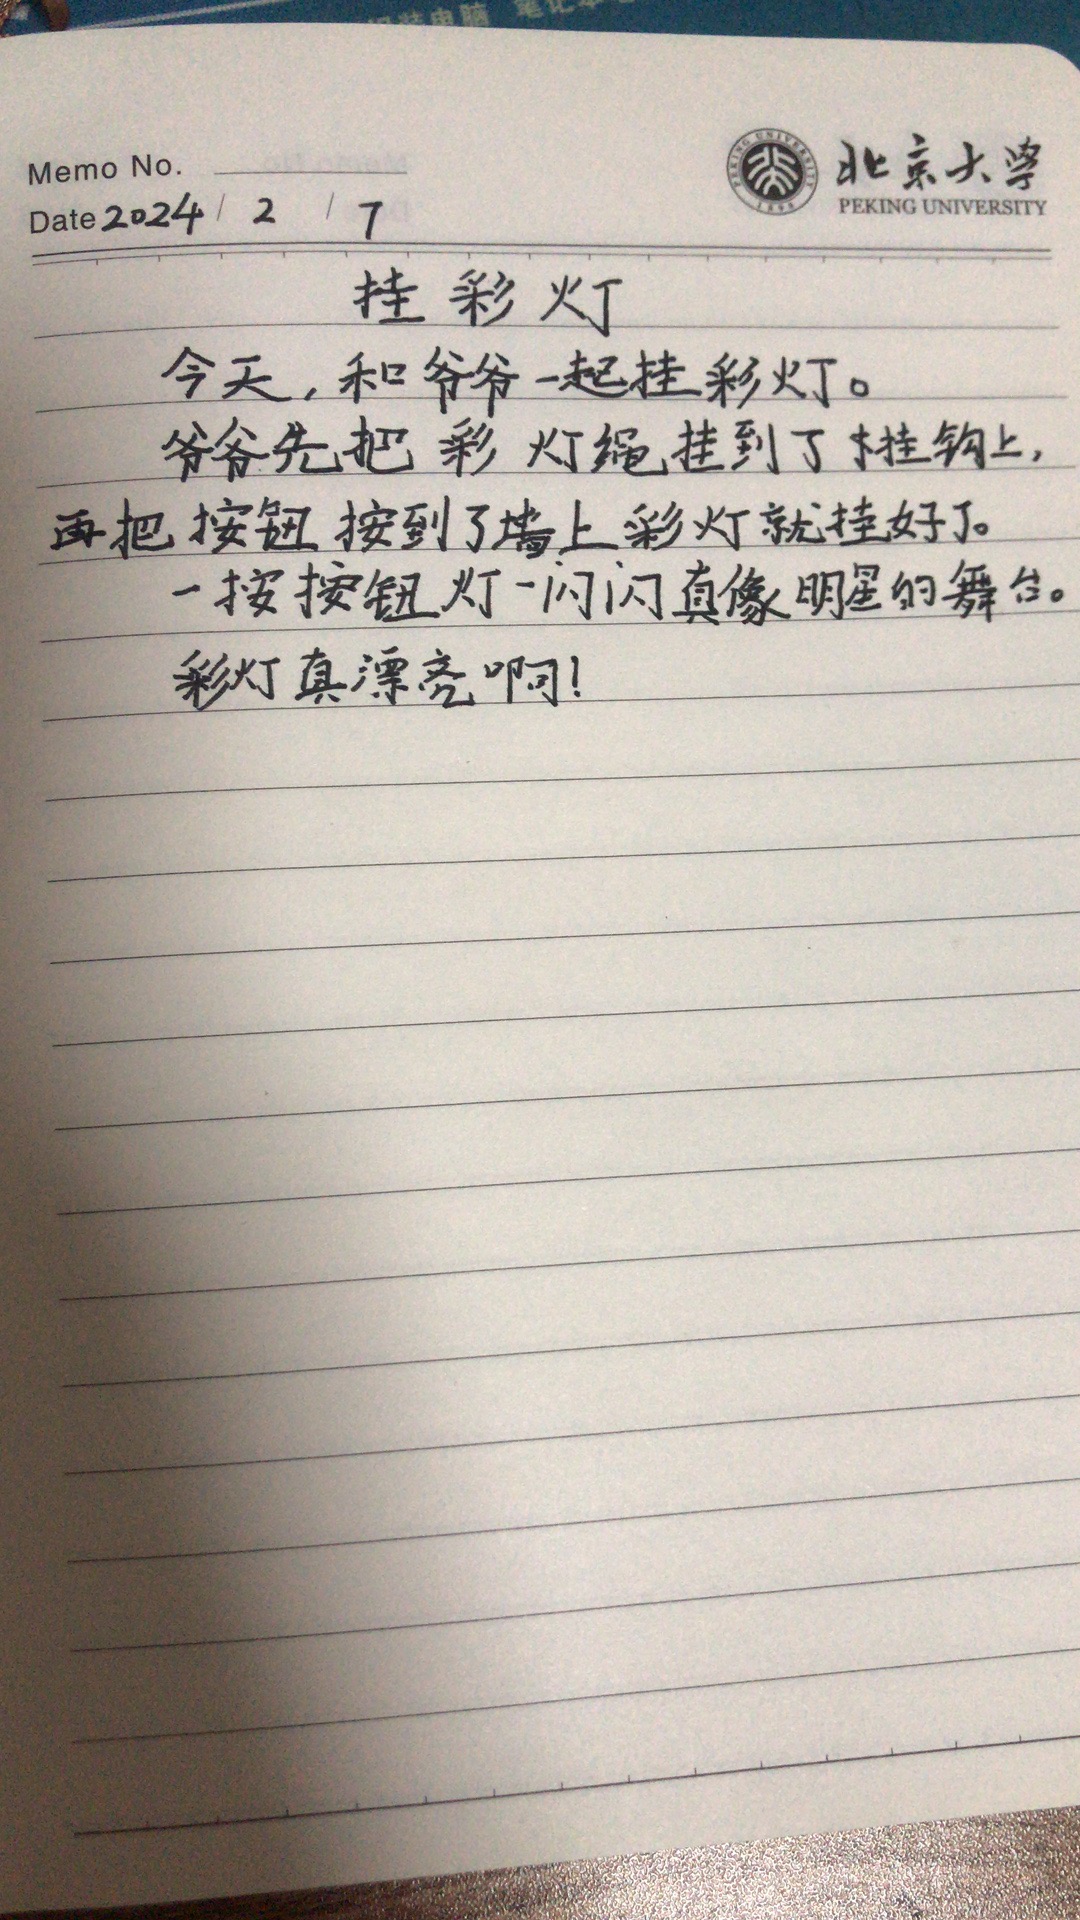 Memo No.
Date 2024 / 2 / 7
PEKING UNIVERSITY
1898
北京大学
PEKING UNIVERSITY
挂彩灯
今天,和爷爷一起挂彩灯。
爷爷先把彩灯绳挂到了挂钩上,
再把按钮按到了墙上彩灯就挂好了。
一按按钮灯一闪闪真像明星的舞台。
彩灯真漂亮啊!